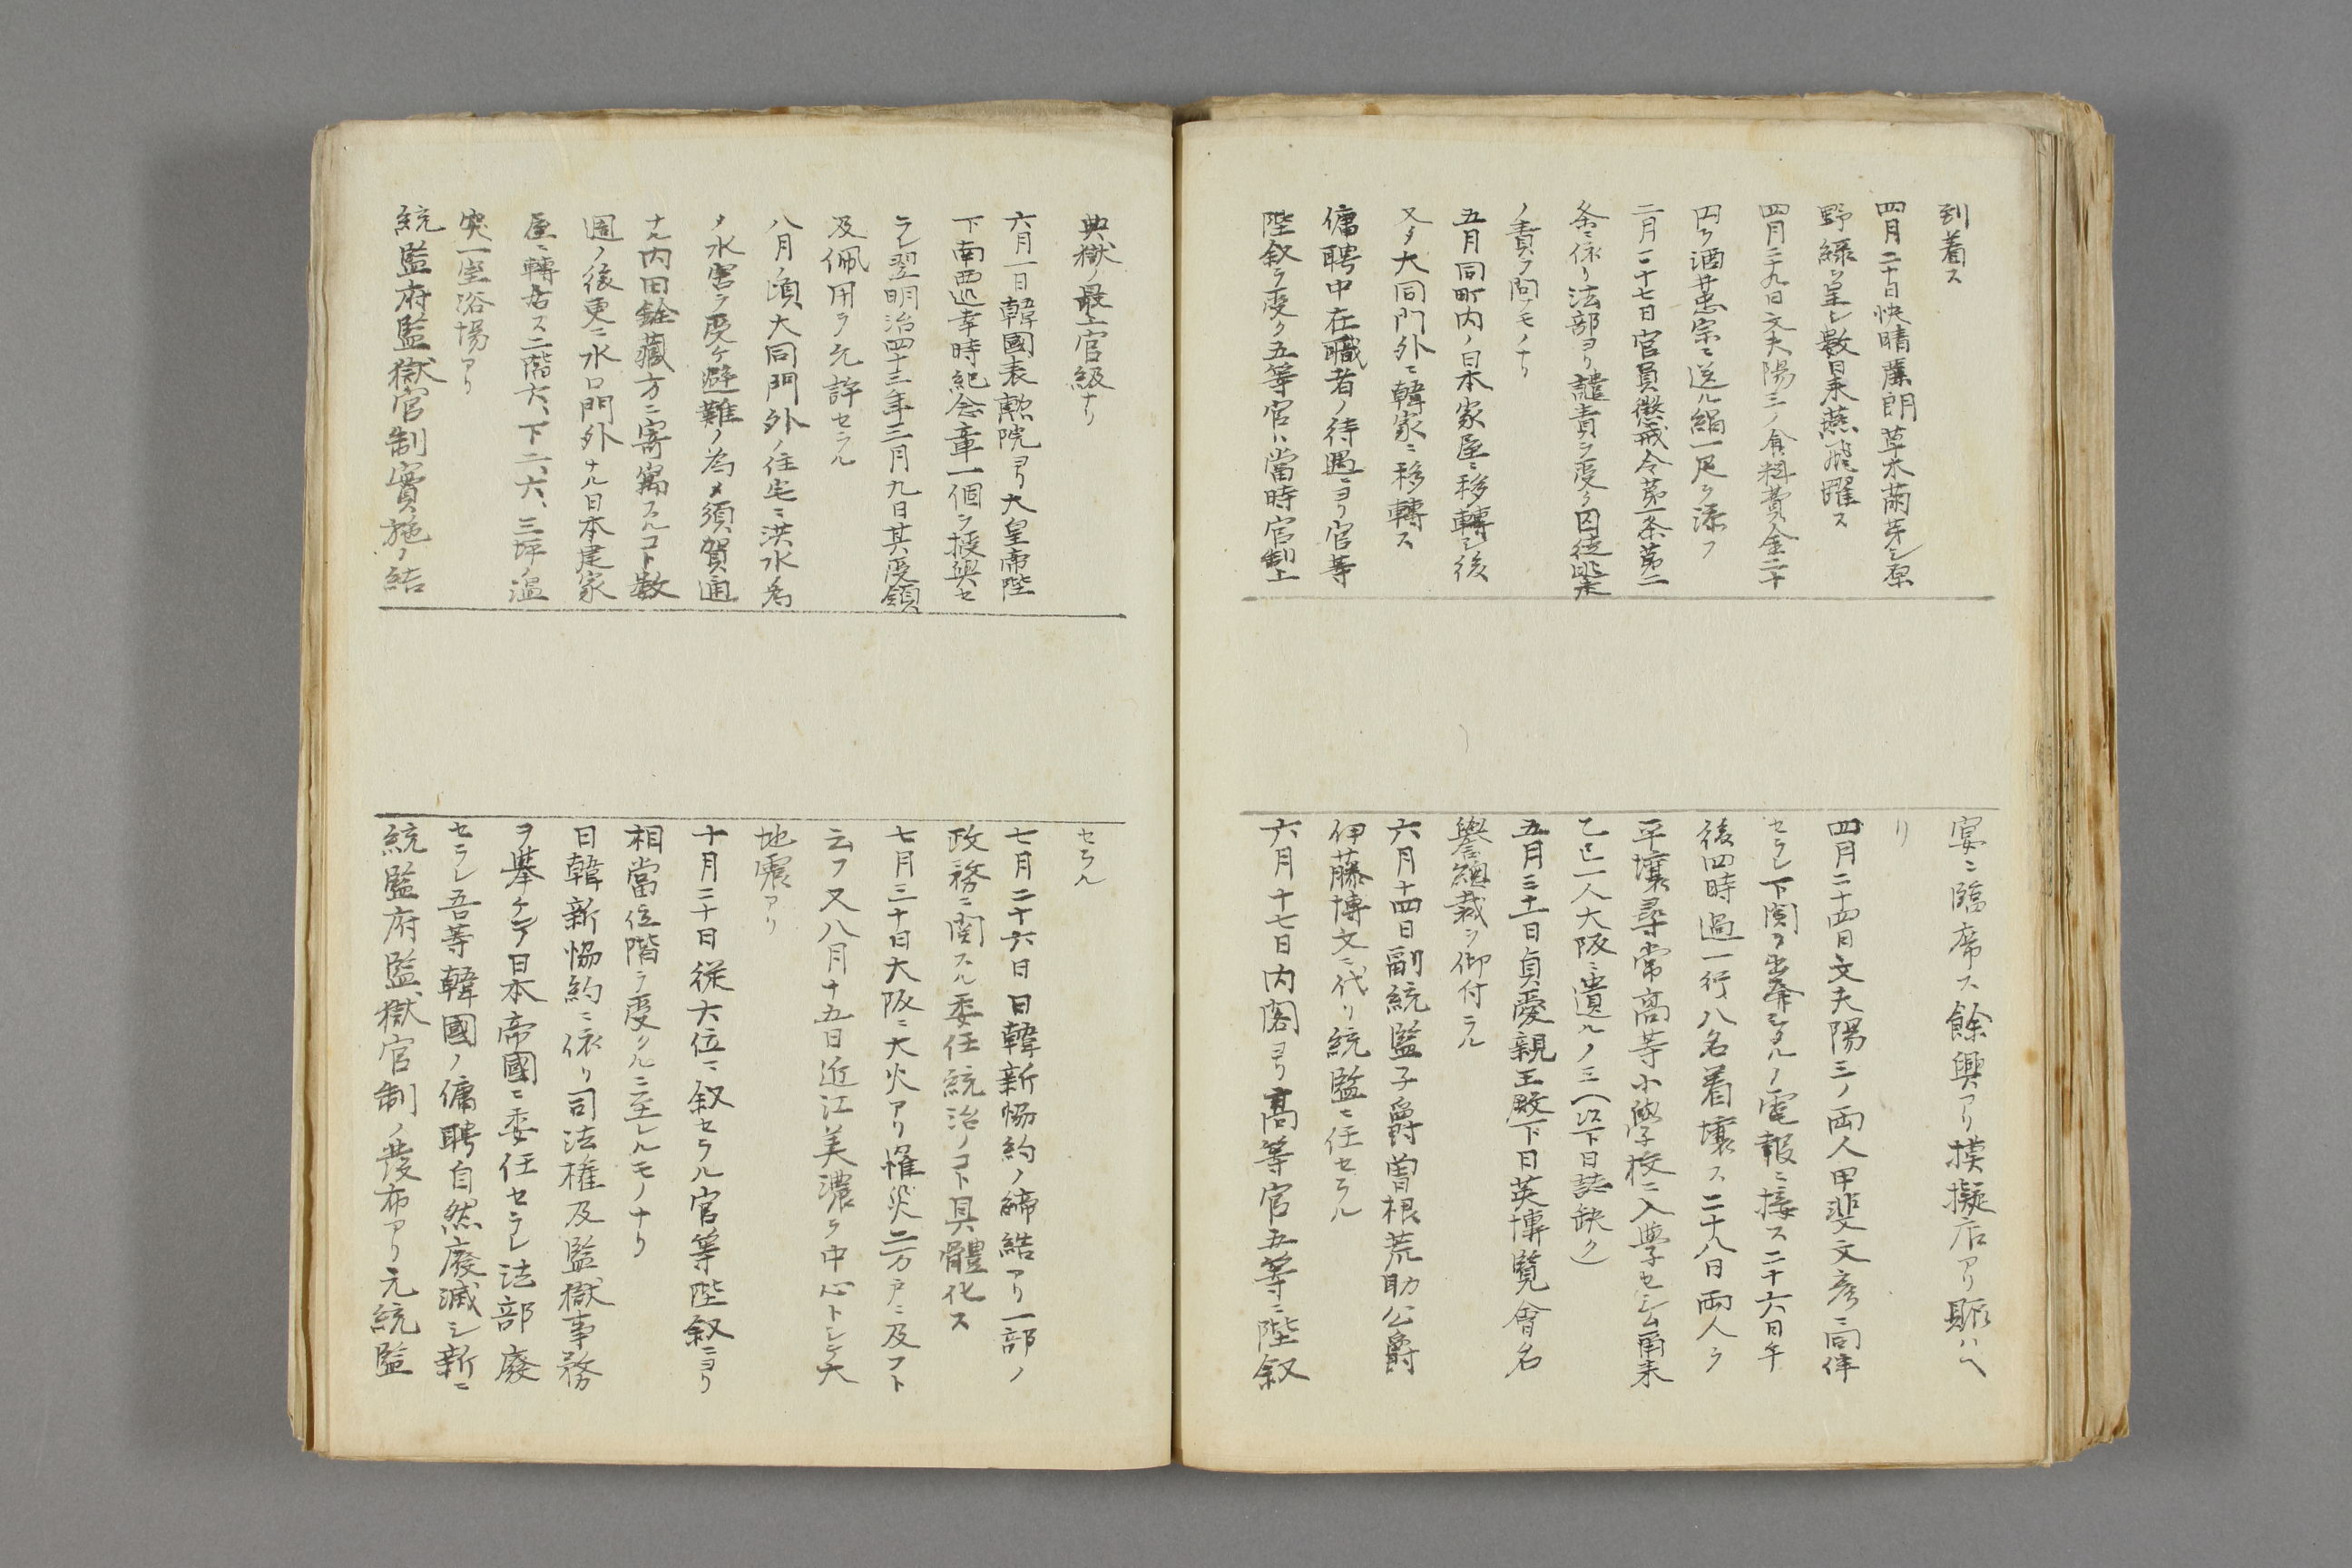 到着ス
四月二十日快晴薫朗草木萠芽シ原
野緑ヲ呈シ数日来燕飛躍ス
四月二十九日文夫陽三ノ食料費金二十
円ヲ酒井恵宗ニ送ル絹一疋ヲ添フ
二月二十七日官員懲戒令第一条第二
条ニ依リ法部ヨリ譴責ヲ受ク囚徒逃走
ノ責ヲ問ノモノナリ
五月同町内ノ日本家屋ニ移轉シ後
又タ大同門外ニ韓家ニ移轉ス
傭聘中在職者ノ待遇ニヨリ官等
陞叙ヲ受ク五等官ハ當時官制上
宴ニ臨席ス餘興アリ摸擬店アリ賑ハヘ
リ
四月二十四日文夫陽三ノ両人甲斐文彦ニ同伴
セラレ下関ヲ出発シタルノ電報ニ接ス二十六日午
後四時過一行八名着壌ス二十八日両人ヲ
平壌尋常高等小學校ニ入学セシム甫来
乙巳一人大阪ニ遺ルノミ(以下日誌缺ク)
五月三十一日貞愛親王殿下日英博覧會名
譽總裁ヲ仰付ラル
六月十四日副統監子爵曽根荒助公爵
伊藤博文ニ代リ統監ニ任セラル
六月十七日内閣ヨリ高等官五等ニ陞叙
典獄ノ最上官級ナリ
六月一日韓國表勲院ヨリ大皇帝陛
下南西巡幸時紀念章一個ヲ授與セ
ラレ翌明治四十三年三月九日其受領
及佩用ヲ允許セラル
八月ノ頃大同門外ノ住宅ニ洪水為
メ水害ヲ受ケ避難ノ為メ須賀通
ナル内田銓藏方ニ寄寓スルコト数
週ノ後更ニ水口門外ナル日本建家
屋ニ轉居ス二階六、下二、六、三坪ノ温
突一室浴場アリ
統監府監獄官制實施ノ結
セラル
七月二十六日日韓新協約ノ締結アリ一部ノ
政務ニ関スル委任統治ノコト具體化ス
七月三十日大阪ニ大火アリ罹災二万戸ニ及フト
云フ又八月十五日近江美濃ヲ中心トシ大
地震アリ
十月二十日従六位ニ叙セラル官等陞叙ニヨリ
相當位階ヲ受クルニ至レルモノナリ
日韓新協約ニ依リ司法権及監獄事務
ヲ擧ケテ日本帝國ニ委任セラレ法部廢
セラレ吾等韓國ノ傭聘自然廢滅シ新ニ
統監府監獄官制ノ発布アリ元統監